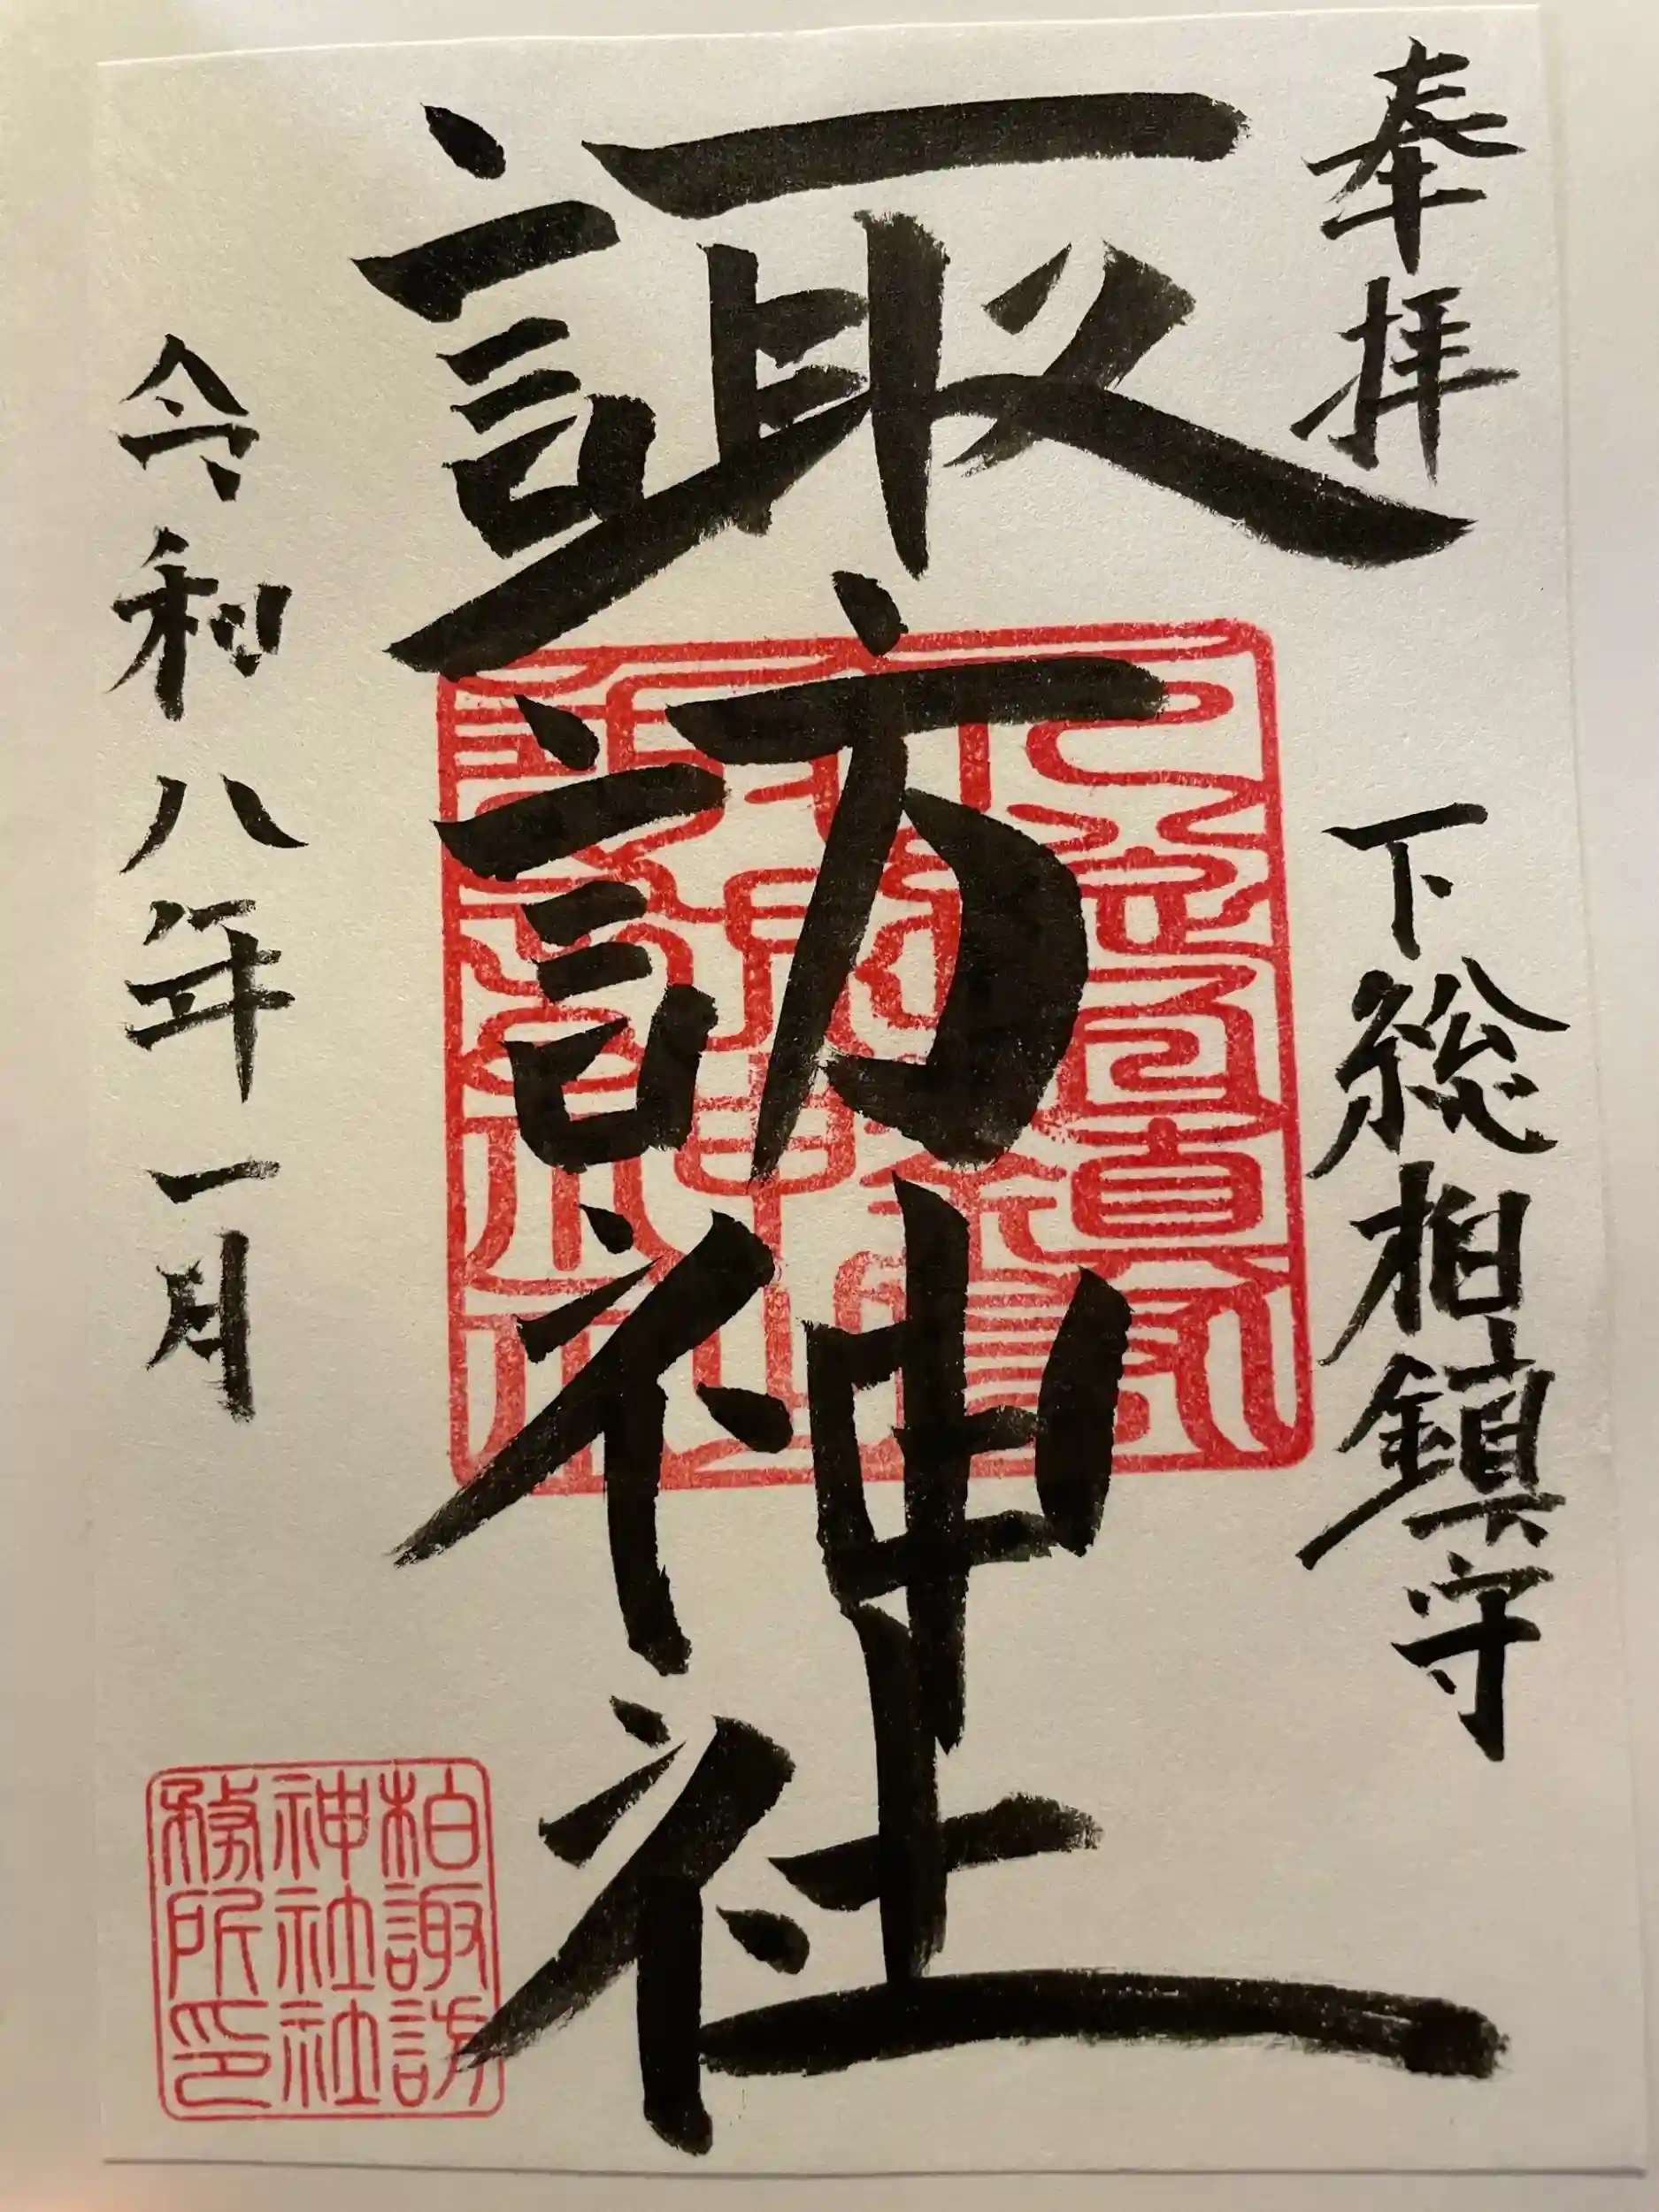 奉拝
下総柏鎮守
諏訪神社
令和八年一月
柏諏訪
神社社
務所印